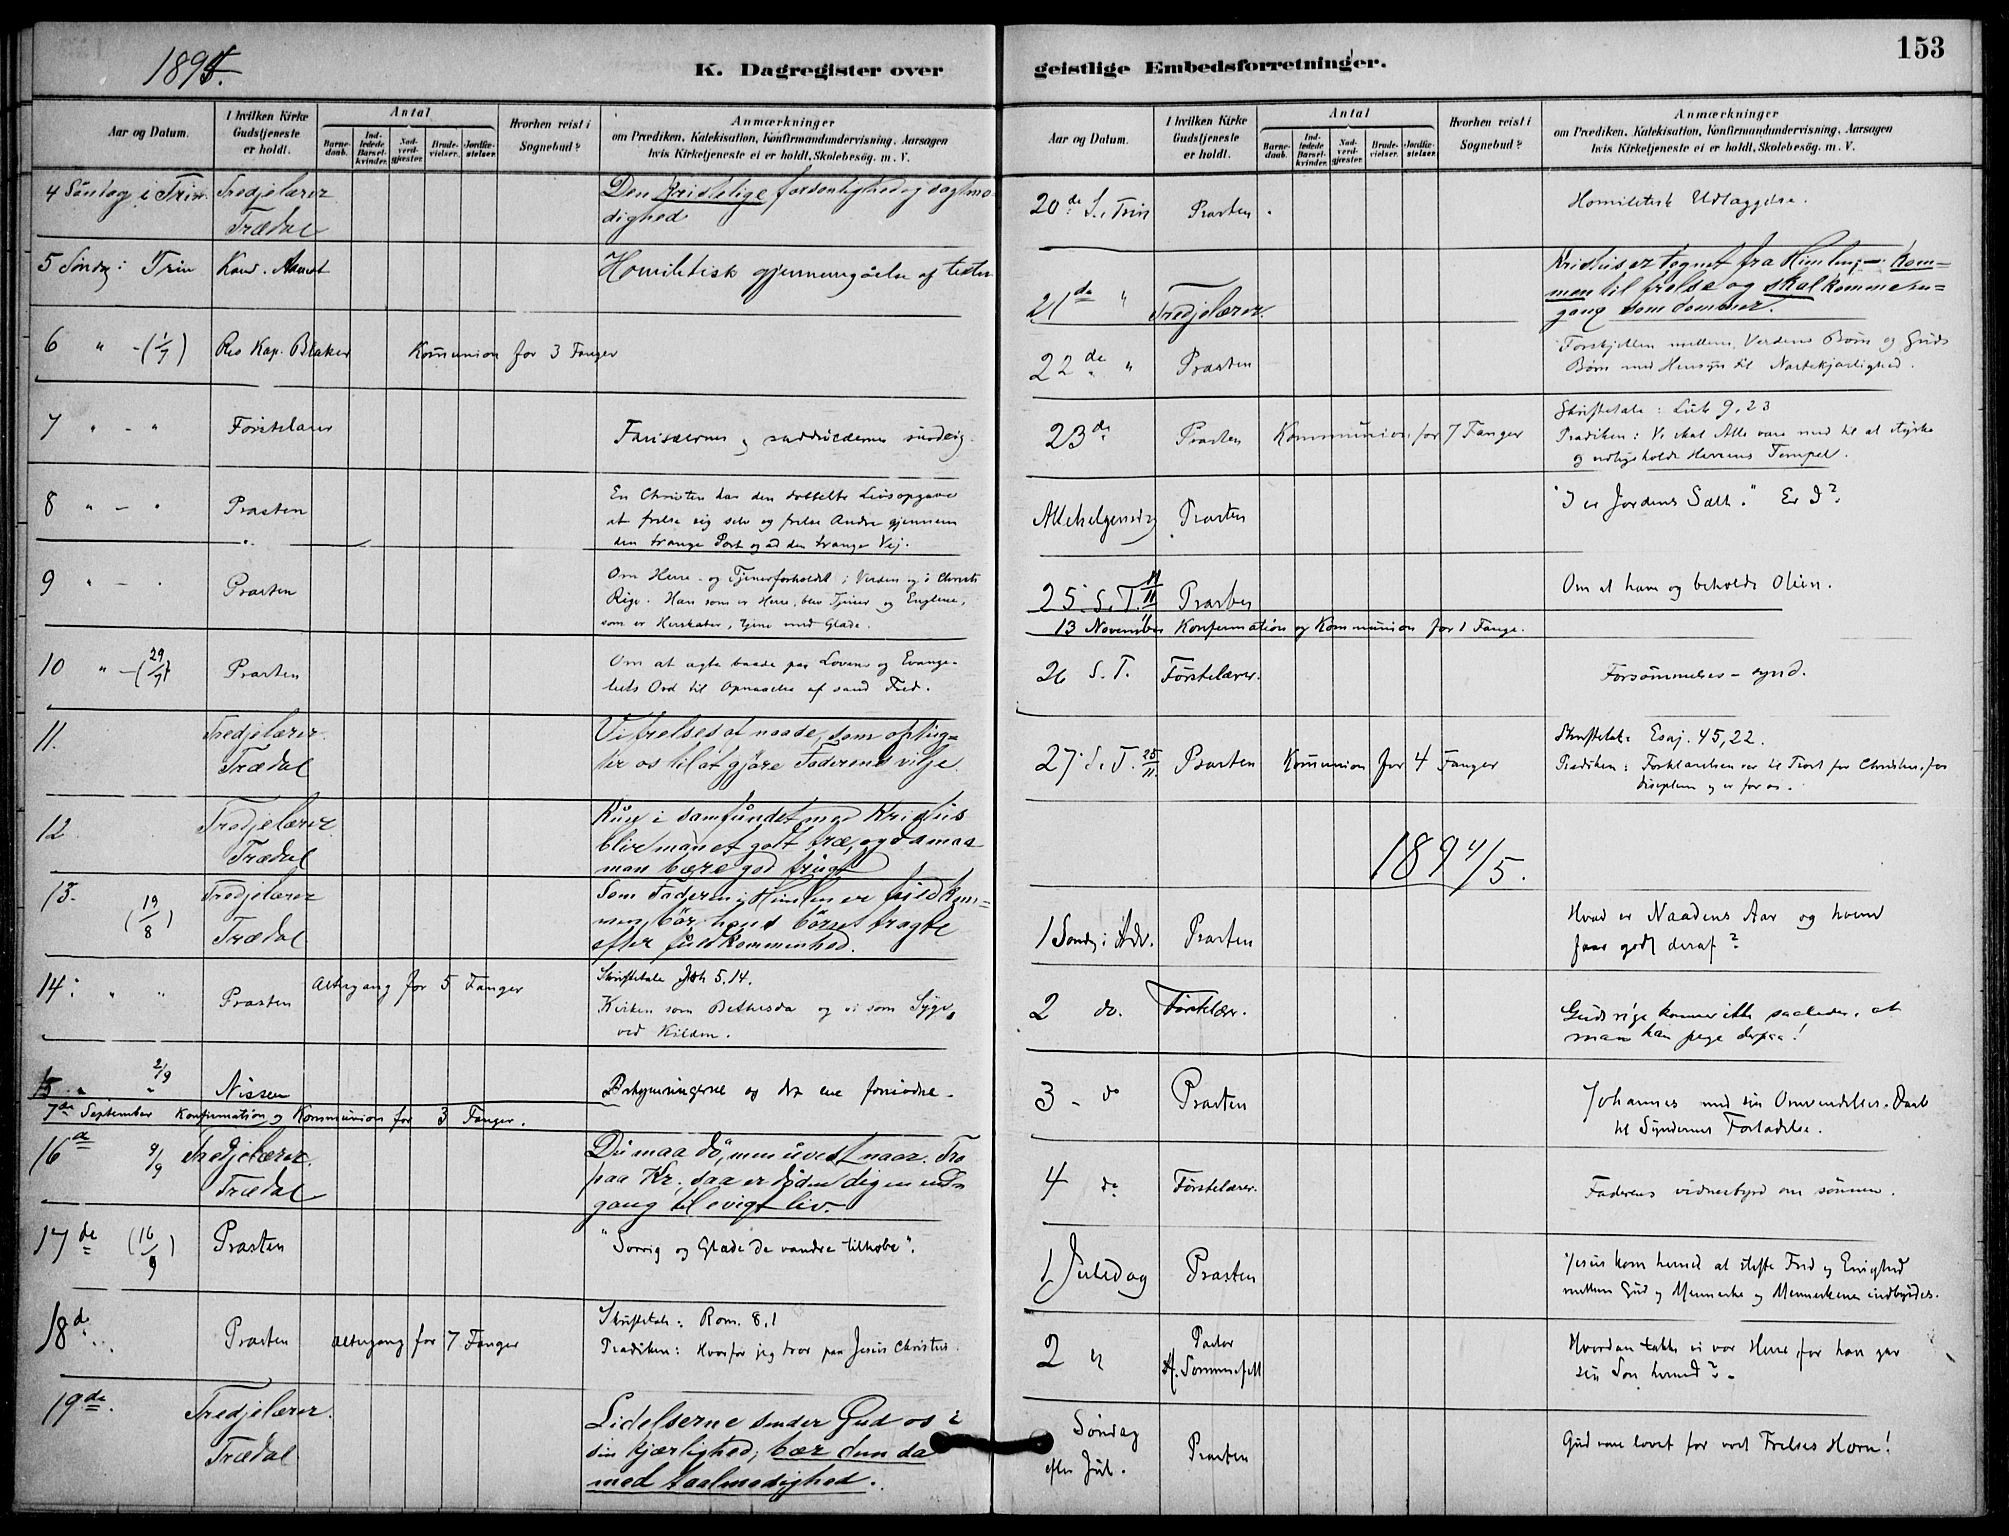 1894.
K. Dagregister over
geistlige Embedsforretninger.
153
Aar og Datum.
I hvilken Kirke
Gudstjeneste
er holdt.
Antal
Barne-
daab.
Ind-
ledede
Barsel-
kvinder.
Nad-
verd-
gjester.
Brude-
vielser.
Jordfæ-
stelser.
Hvorhen reist i
Sognebud?
Anmærkninger
om Prædiken, Katekisation, Konfirmandundervisning, Aarsagen
hvis Kirketjeneste ei er holdt, Skolebesøg. m. V.
4 Söndag i Trin. Tredjelærer
Trædal
Den kristelige forsonlighed og sagtmo-
dighed
5 Sønd. i Trin Kand. Aamot
Homiletisk gjennemgåelse af texten
6 " - (1/7) Res Kap. Blaker Kommunion for 3 Fanger
7 " - " Førstelærer
Farisæernes og sadducæernes surdeig.
8 " - " Præsten
En Christen har den dobbelte Livsopgave
at frelse sig selv og frelse Andre gjennem
den trange Port og ad den trange Vej.
9 " - " Præsten
Om Herre- og Tjenerforholdet i Verden og i Christi
Rige. Han som er Herre, blev Tjener og Englene,
som er Herskaber, tjene med Glæde.
10 " - (29/7) Præsten
Om at agte baade paa Lovens og Evange-
liets Ord til Opnaaelse af sand Fred.
11. Tredjelærer
Trædal
Vi frelses af naade, som optug-
ter os til at gjöre Faderens vilje.
12 Tredjelærer
Trædal
Kun i samfundet med Kristus
blir man et godt træ, og da maa
man bære god frugt
13. (19/8) Tredjelærer
Trædal
Som Faderen i Himlen er fuldkom-
men, bör hans börn tragte
efter fuldkommenhed.
14. " " Præsten Altergang for 5 Fanger
Skriftetale Joh 5.14.
Kirken som Bethesda og vi som Syge
ved Kilden.
15 " 2/9 Nissen
Bekymringerne og det ene fornødne.
7de September Konfirmation og Kommunion for 3 Fanger.
16de 9/9 Tredjelærer
Trædal
Du maa dö, men uvist naar. Tro
paa Kr., saa er döden dig en ind-
gang til evigt liv.
17de (16/9) Præsten
"Sorrig og Glæde de vandre tilhobe".
18de Præsten Altergang for 7 Fanger
Skriftetale: Rom. 8,1
Prædiken: Hvorfor jeg tror paa Jesus Christus.
19de Tredjelærer
Trædal
Lidelserne sender Gud os i
sin kjærlighed; bær dem da
med taalmodighed.
Aar og Datum.
I hvilken Kirke
Gudstjeneste
er holdt.
Antal
Barne-
daab.
Ind-
ledede
Barsel-
kvinder.
Nad-
verd-
gjester.
Brude-
vielser.
Jordfæ-
stelser.
Hvorhen reist i
Sognebud?
Anmærkninger
om Prædiken, Katekisation, Konfirmandundervisning, Aarsagen
hvis Kirketjeneste ei er holdt, Skolebesøg. m. V.
20de S. Trin Præsten.
Homiletisk Udlæggelse.
21de " Tredjelærer.
Kristus er tegnet fra Himlen; - kom-
men til frelse og skal komme en-
gang som dommer.
22de " Præsten
Forskjellen mellem Verdens Børn og Guds
Børn med Hensyn til Næstekjærlighed.
23de Præsten Kommunion for 7 Fanger
Skriftetale: Luk 9,23
Prædiken: Vi skal Alle være med til at styrke
og vedligeholde Herrens Tempel.
Allehelgensdag Præsten
"I er Jordens Salt." Er I?
25 S. T. 11/11 Præsten
Om at have og beholde Olien.
13 November Konfirmation og Kommunion for 1 Fange.
26 S. T. Førstelærer.
Forsömmelses-synd.
27 S. T. 25/11. Præsten Kommunion for 4 Fanger
Skriftetale Esaj. 45,22.
Prædiken: Forklarelsen var til Trøst for Christus, for
disciplene og er for os.
1894/5.
1 Sønd. i Adv. Præsten
Hvad er Naadens Aar og hvem
faar godt deraf?
2 do. Førstelær.
Guds rige kommer ikke saaledes, at
man kan pege derpaa!
3 - do Præsten
Johannes med sin Omvendelses-Daab
til Syndernes Forladelse.
4 do Førstelærer.
Faderens vidnesbyrd om sønnen.
1 Juledag Præsten
Jesus kom herned at stifte Fred og Enighed
mellem Gud og Menneske og Menneskene indbyrdes.
2 " Pastor
H. Sommerfelt
Hvordan takke vi vor Herre, for han gav
sin Søn herned?
Søndag
efter Jul. Præsten
Gud være lovet for vort Frelses Horn!